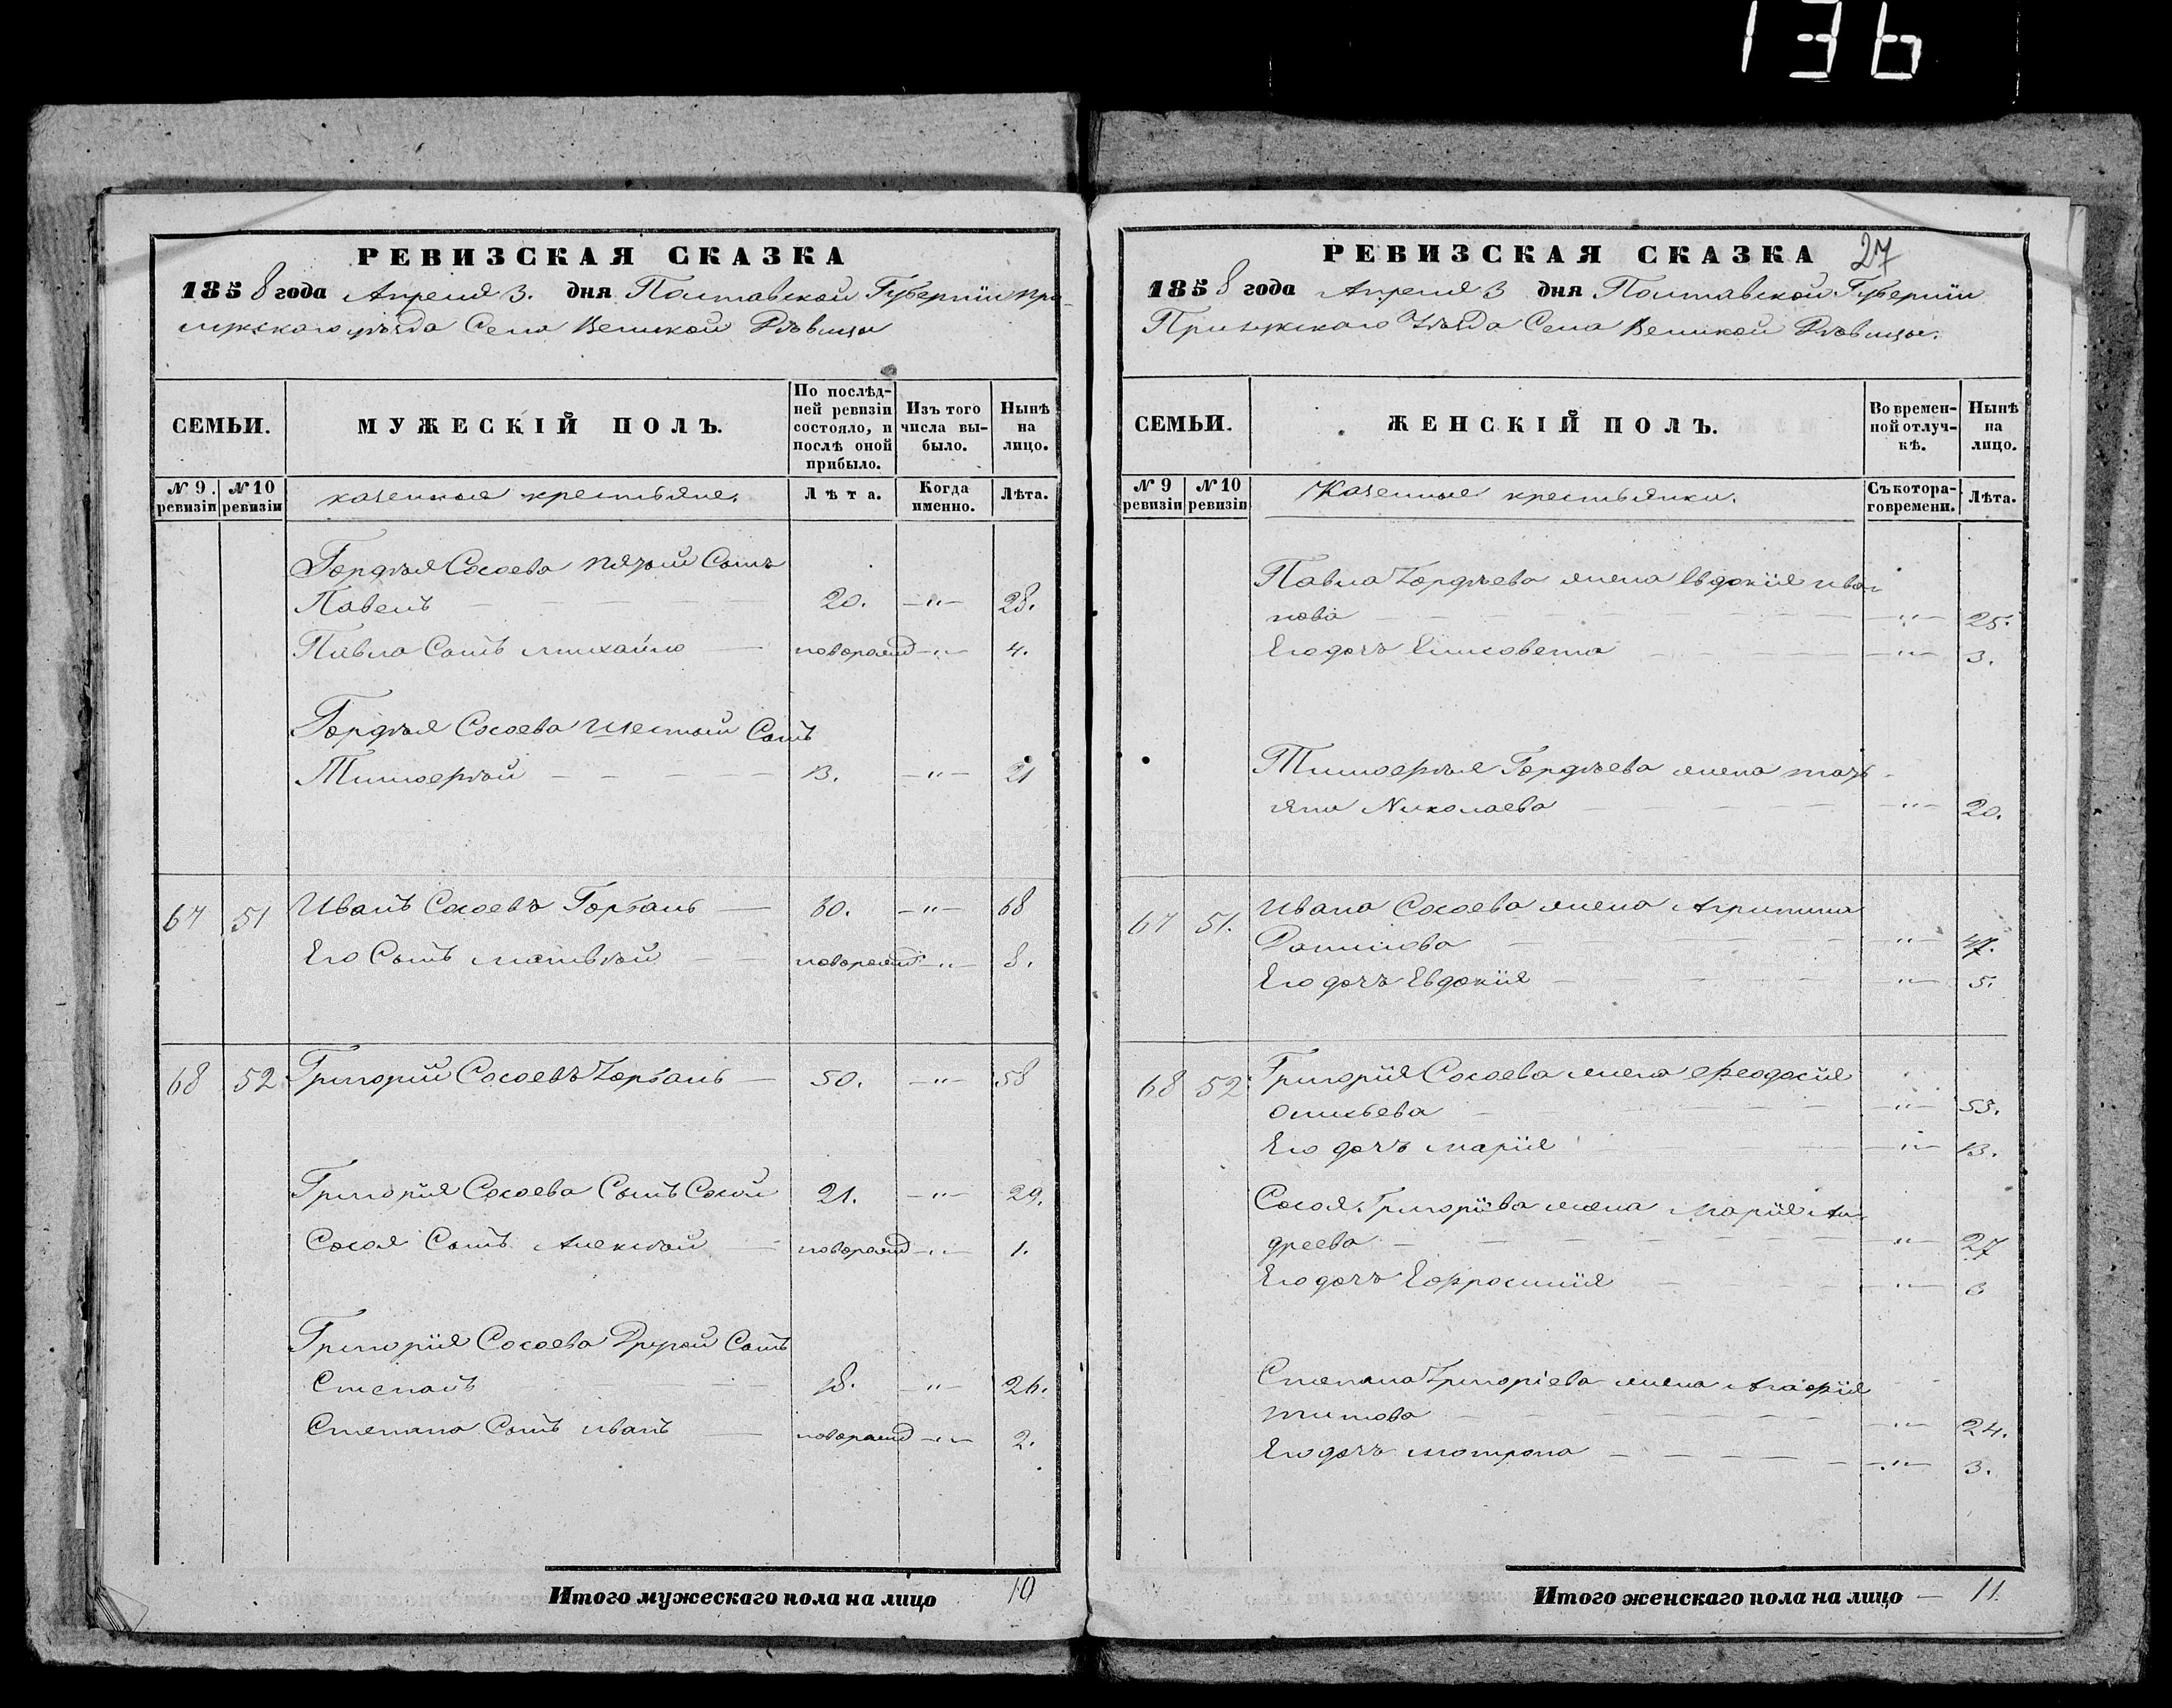 136
РЕВИЗСКАЯ СКАЗКА
1858 года Апреля 3. дня Полтавской Губерніи При-
лужскаго уѣзда Села Великой Дѣвицы
СЕМЬИ.
МУЖЕСКІЙ ПОЛЪ.
По послѣд-
ней ревизіи
состояло, и
послѣ оной
прибыло.
Изъ того
числа вы-
было.
Нынѣ
на
лицо.
№ 9. ревизіи
№ 10 ревизіи
казенные крестьяне.
Лѣта.
Когда
именно.
Лѣта.
Гордѣя Сосоева пятый Сынъ
Павелъ 20. —"— 28.
Павла Сынъ Михайло новорожд —"— 4.
Гордѣя Сосоева шестый Сынъ
Тимоѳѣй 13. —"— 21
67 51 Иванъ Сосоевъ Горбань 60. —"— 68
Его Сынъ Матвѣй новорожд —"— 8.
68 52 Григорій Сосоевъ Горбань 50. —"— 58
Григорія Сосоева Сынъ Сосой 21. —"— 29.
Сосоя Сынъ Алексѣй новорожд —"— 1.
Григорія Сосоева Другой Сынъ
Степанъ 18. —"— 26.
Степана Сынъ Иванъ новорожд —"— 2.
Итого мужескаго пола на лицо 10
РЕВИЗСКАЯ СКАЗКА 27
1858 года Апреля 3 дня Полтавской Губерніи
Прилужскаго Уѣзда Села Великой Дѣвицы.
СЕМЬИ.
ЖЕНСКІЙ ПОЛЪ.
Во времен-
ной отлуч-
кѣ.
Нынѣ
на
лицо.
№ 9 ревизіи
№ 10 ревизіи
Казенные крестьянки.
Съ котора-
го времени.
Лѣта.
Павла Гордѣева жена Евдокія Ива-
нова —"— 25.
Его дочь Елисовета —"— 3.
Тимоѳѣя Гордѣева жена Тать
яна Николаева —"— 20.
67 51. Ивана Сосоева жена Агрипина
Данилова —"— 47.
Его дочь Евдокія —"— 5.
68 52 Григорія Сосоева жена Феодосія
Осипьева —"— 53.
Его дочь Марія —"— 13.
Сосоя Григоріева жена Марія Ан
дреева —"— 27
Его дочь Ефросинія —"— 6
Степана Григоріева жена Агафія
Титова —"— 24.
Его дочь Мотрона —"— 3.
Итого женскаго пола на лицо — 11.